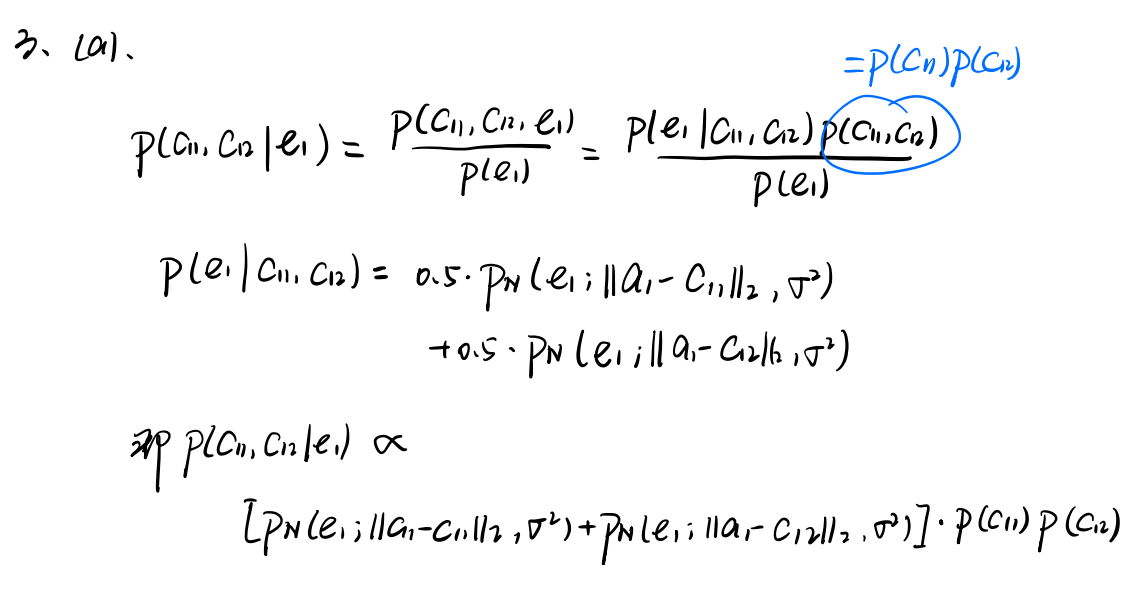 3、(a)、
=p(C₁₁)p(C₁₂)
p(C₁₁, C₁₂ | e₁) = p(C₁₁, C₁₂, e₁) / p(e₁) = p(e₁ | C₁₁, C₁₂) p(C₁₁, C₁₂) / p(e₁)
p(e₁ | C₁₁, C₁₂) = 0.5 · p_N(e₁; ||a₁ - C₁₁||₂, σ²)
+0.5 · p_N(e₁; ||a₁ - C₁₂||₂, σ²)
即 p(C₁₁, C₁₂ | e₁) ∝
[p_N(e₁; ||a₁ - C₁₁||₂, σ²) + p_N(e₁; ||a₁ - C₁₂||₂, σ²)] · p(C₁₁) p(C₁₂)